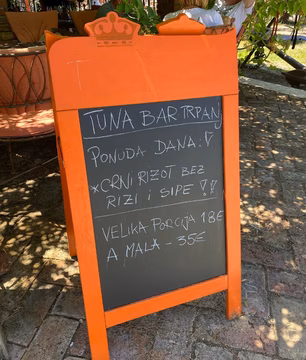 TUNA BAR TRPANJ
PONUDA DANA:
*CRNI RIZOT BEZ
RIZI I SIPE !!
VELIKA PORCIJA 18€
A MALA - 35€